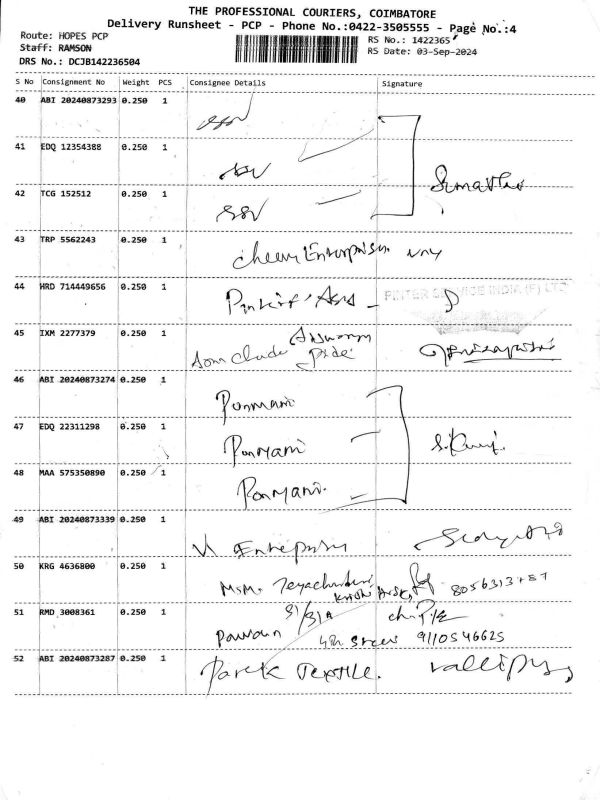 THE PROFESSIONAL COURIERS, COIMBATORE
Delivery Runsheet - PCP - Phone No.:0422-3505555 - Page No.:4
Route: HOPES PCP
Staff: RAMSON
DRS No.: DCJB142236504
RS No.: 1422365
RS Date: 03-Sep-2024
S No Consignment No Weight PCS Consignee Details Signature
40 ABI 20240873293 0.250 1
41 EDQ 12354388 0.250 1
42 TCG 152512 0.250 1 SSV
43 TRP 5562243 0.250 1 Cheery Enterprises
44 HRD 714449656 0.250 1
PINTER SERVICE INDIA (P) LTD
45 IXM 2277379 0.250 1
46 ABI 20240873274 0.250 1 Ponmani
47 EDQ 22311298 0.250 1 Ponmani
48 MAA 575350890 0.250 1 Ponmani
49 ABI 20240873339 0.250 1 V Enterprises
50 KRG 4636800 0.250 1 MSM. Jeyachandran
51 RMD 3008361 0.250 1 Pawan 31/31A
4th Street 9110546625
52 ABI 20240873287 0.250 1 Parek Textile.